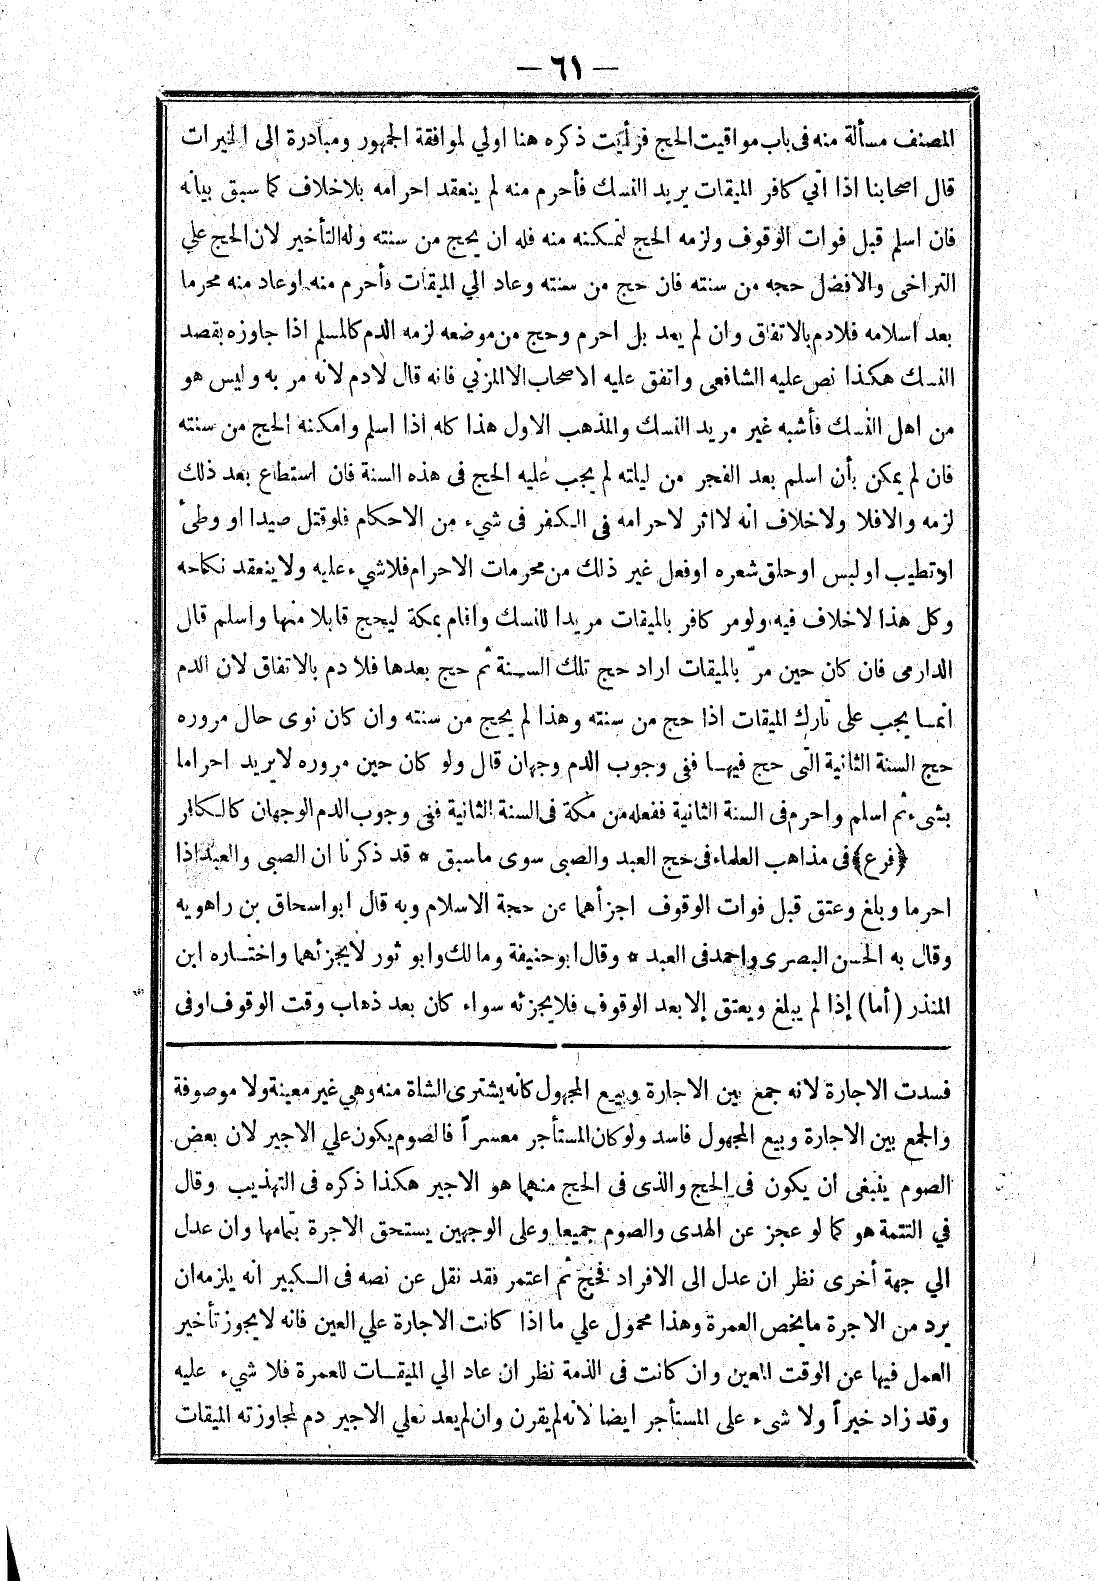 — ٦١ —
المصنف مسألة منه فى باب مواقيت الحج فرأيت ذكره هنا اولي لموافقة الجمهور ومبادرة الى الخيرات
قال اصحابنا اذا اتي كافر الميقات يريد النسك فأحرم منه لم ينعقد احرامه بلاخلاف كما سبق بيانه
فان اسلم قبل فوات الوقوف ولزمه الحج لتمكنه منه فله ان يحج من سنته وله التأخير لان الحج علي
التراخى والافضل حجه من سنته فان حج من سنته وعاد الي الميقات فأحرم منه اوعاد منه محرما
بعد اسلامه فلادم بالاتفاق وان لم يعد بل احرم وحج من موضعه لزمه الدم كالمسلم اذا جاوزه بقصد
النسك هكذا نص عليه الشافعى واتفق عليه الاصحاب الا المزني فانه قال لادم لانه مر به وليس هو
من اهل النسك فأشبه غير مريد النسك والمذهب الاول هذا كله اذا اسلم وامكنه الحج من سنته
فان لم يمكن بأن اسلم بعد الفجر من ليلته لم يجب عليه الحج فى هذه السنة فان استطاع بعد ذلك
لزمه والافلا ولاخلاف انه لااثر لاحرامه فى الكفر فى شىء من الاحكام فلوقتل صيدا او وطئ
اوتطيب اولبس اوحلق شعره اوفعل غير ذلك من محرمات الاحرام فلاشىء عليه ولاينعقد نكاحه
وكل هذا لاخلاف فيه ولومر كافر بالميقات مريدا للنسك واقام بمكة ليحج قابلا منها واسلم قال
الدارمى فان كان حين مرّ بالميقات اراد حج تلك السنة ثم حج بعدها فلا دم بالاتفاق لان الدم
انما يجب على تارك الميقات اذا حج من سنته وهذا لم يحج من سنته وان كان نوى حال مروره
حج السنة الثانية التى حج فيها ففى وجوب الدم وجهان قال ولو كان حين مروره لايريد احراما
بشىء ثم اسلم واحرم فى السنة الثانية ففعله من مكة فى السنة الثانية ففى وجوب الدم الوجهان كالكافر
﴿فرع﴾ فى مذاهب العلماء فى حج العبد والصبى سوى ماسبق * قد ذكرنا ان الصبى والعبد اذا
احرما وبلغ وعتق قبل فوات الوقوف اجزأهما عن حجة الاسلام وبه قال ابواسحاق بن راهويه
وقال به الحسن البصرى واحمد فى العبد * وقال ابوحنيفة ومالك وابو ثور لايجزئهما واختاره ابن
المنذر (أما) إذا لم يبلغ ويعتق إلا بعد الوقوف فلايجزئه سواء كان بعد ذهاب وقت الوقوف اوفى
فسدت الاجارة لانه جمع بين الاجارة وبيع المجهول كانه يشترى الشاة منه وهي غير معينة ولا موصوفة
والجمع بين الاجارة وبيع المجهول فاسد ولوكان المستأجر معسراً فالصوم يكون علي الاجير لان بعض
الصوم ينبغى ان يكون فى الحج والذى فى الحج منهما هو الاجير هكذا ذكره فى التهذيب وقال
في التتمة هو كما لو عجز عن الهدى والصوم جميعا وعلى الوجهين يستحق الاجرة بتمامها وان عدل
الي جهة أخرى نظر ان عدل الى الافراد فحج ثم اعتمر فقد نقل عن نصه فى الكبير انه يلزمه ان
يرد من الاجرة مايخص العمرة وهذا محمول علي ما اذا كانت الاجارة علي العين فانه لايجوز تأخير
العمل فيها عن الوقت المعين وان كانت فى الذمة نظر ان عاد الي الميقات للعمرة فلا شيء عليه
وقد زاد خيراً ولا شىء على المستأجر ايضا لانه لم يقرن وان لم يعد فعلي الاجير دم لمجاوزته الميقات